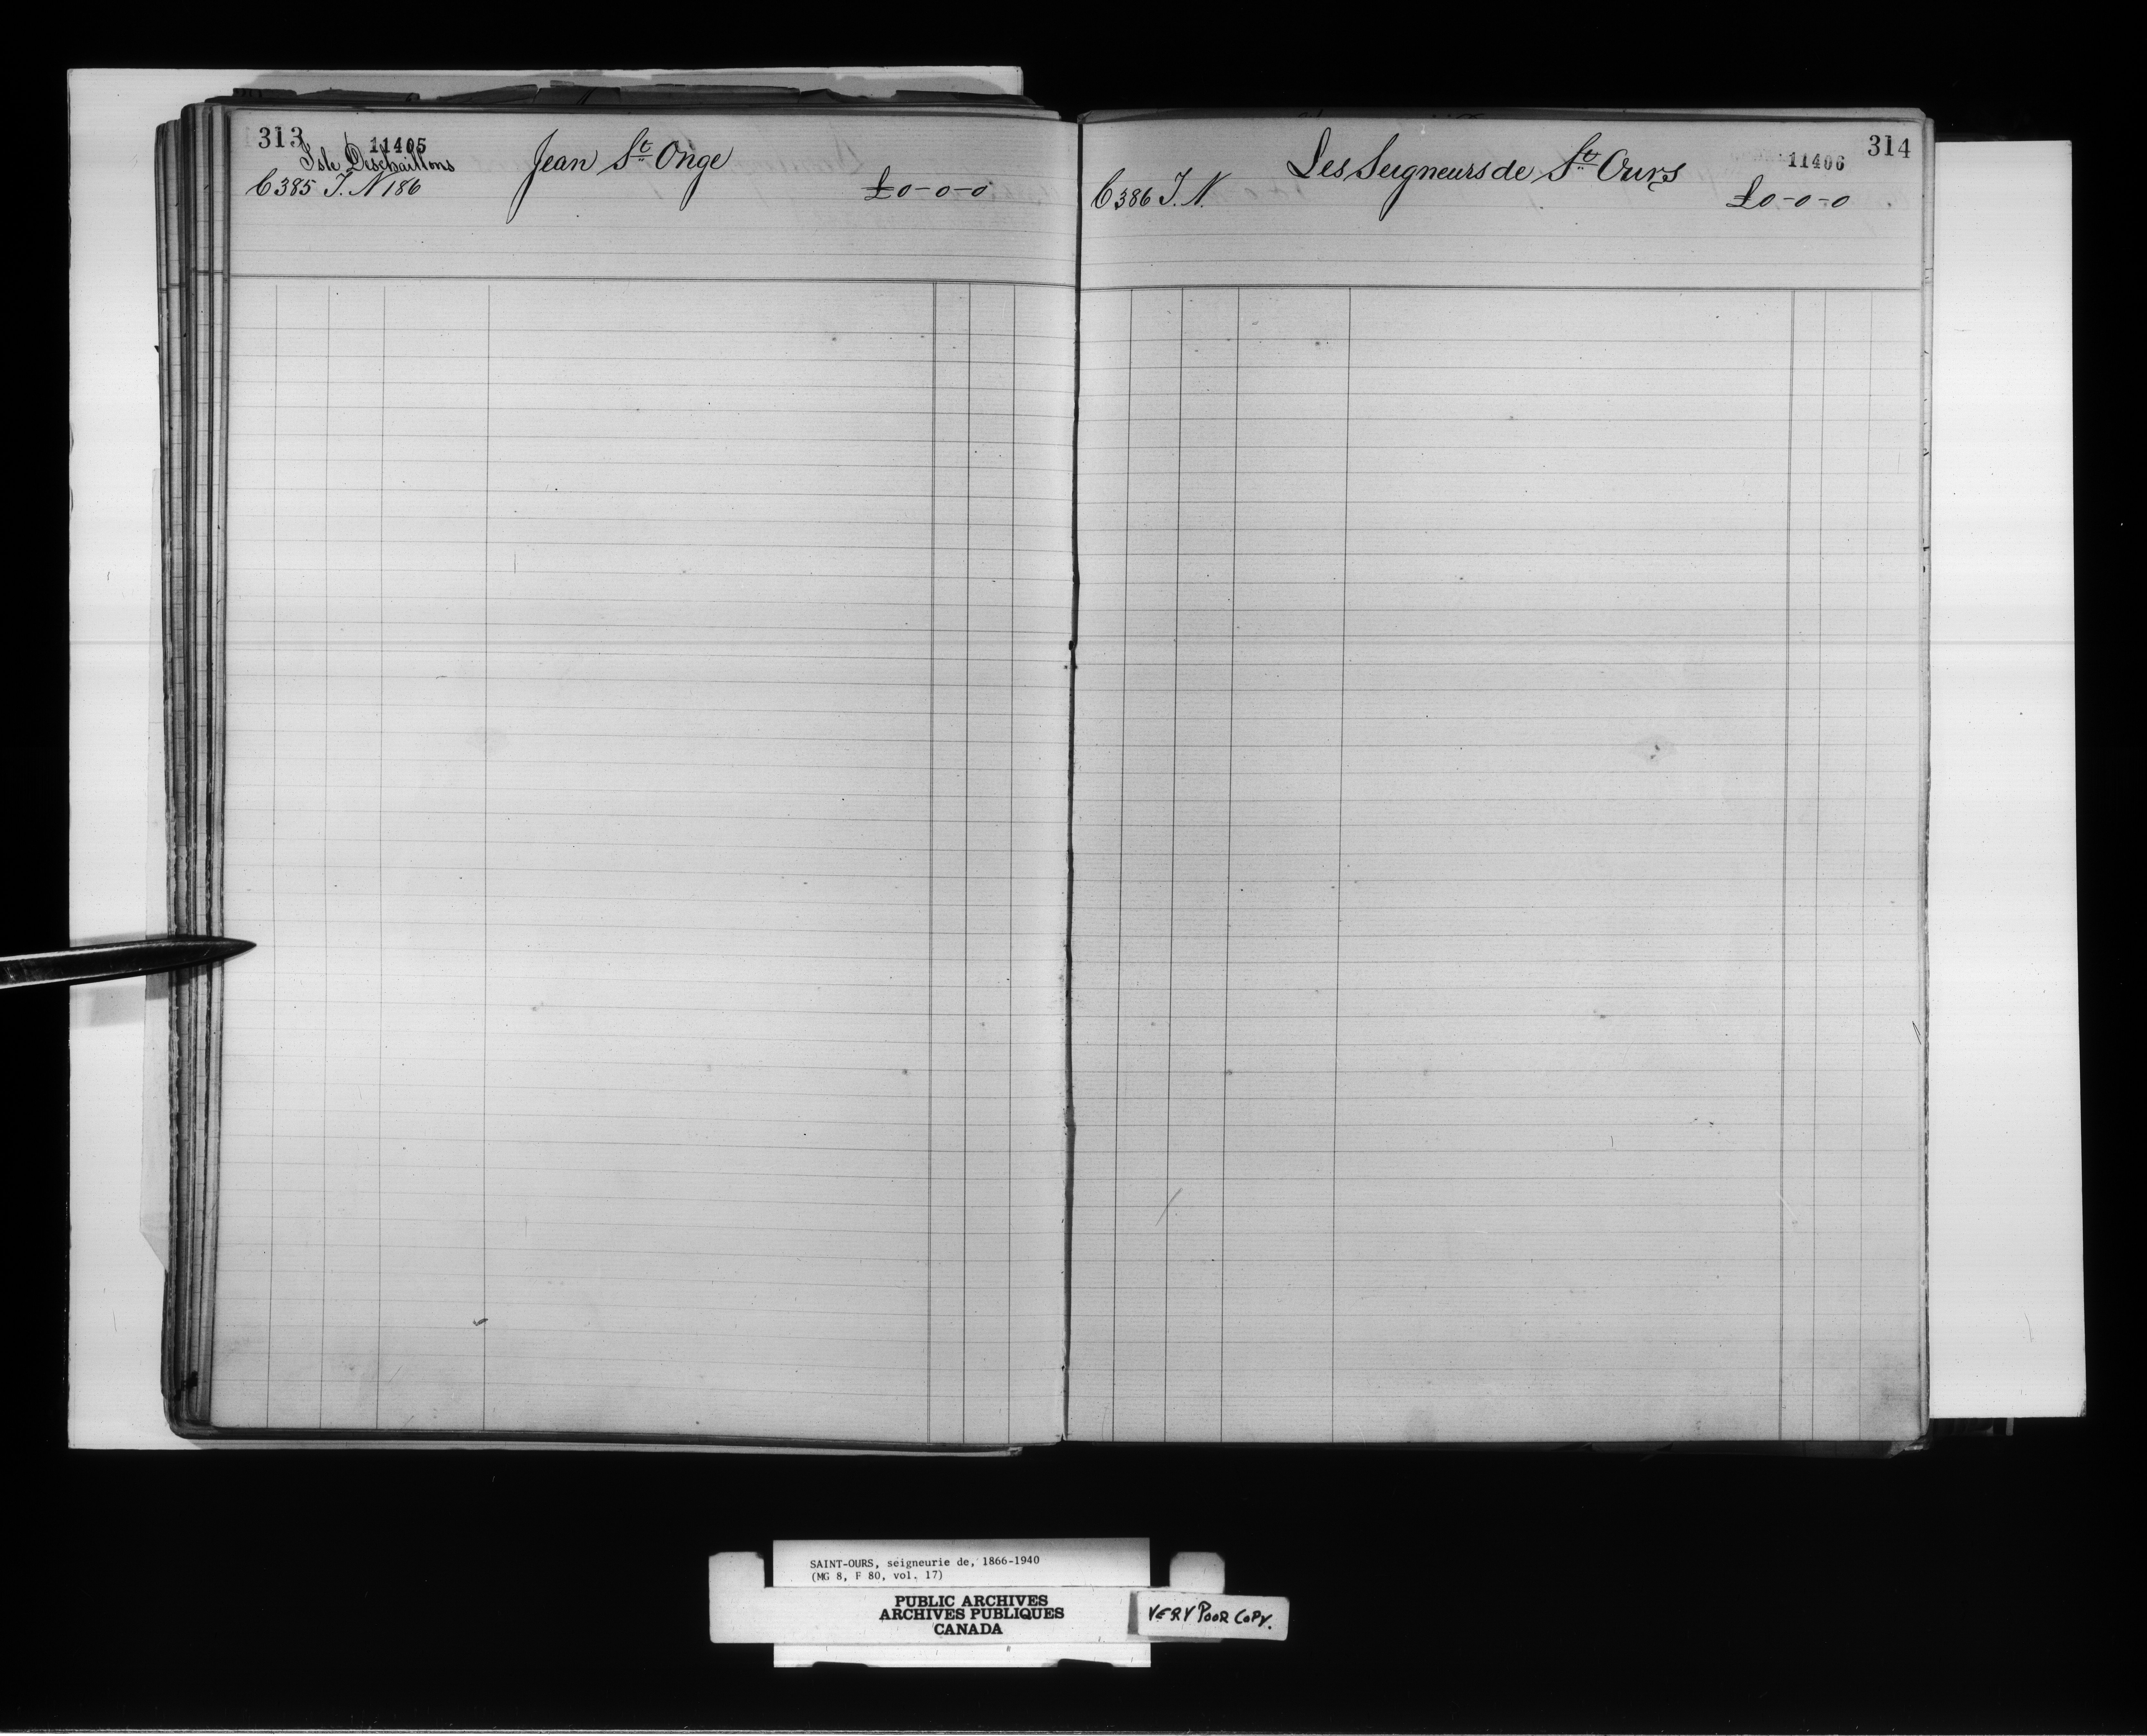 313
11405
Isle Deschaillons
C 385 T. N 186
Jean St. Onge
£0-0-0
314
11406
Les Seigneurs de St. Ours
C 386 T. N.
£0-0-0
SAINT-OURS, seigneurie de, 1866-1940
(MG 8, F 80, vol. 17)
PUBLIC ARCHIVES
ARCHIVES PUBLIQUES
CANADA
VERY POOR COPY.